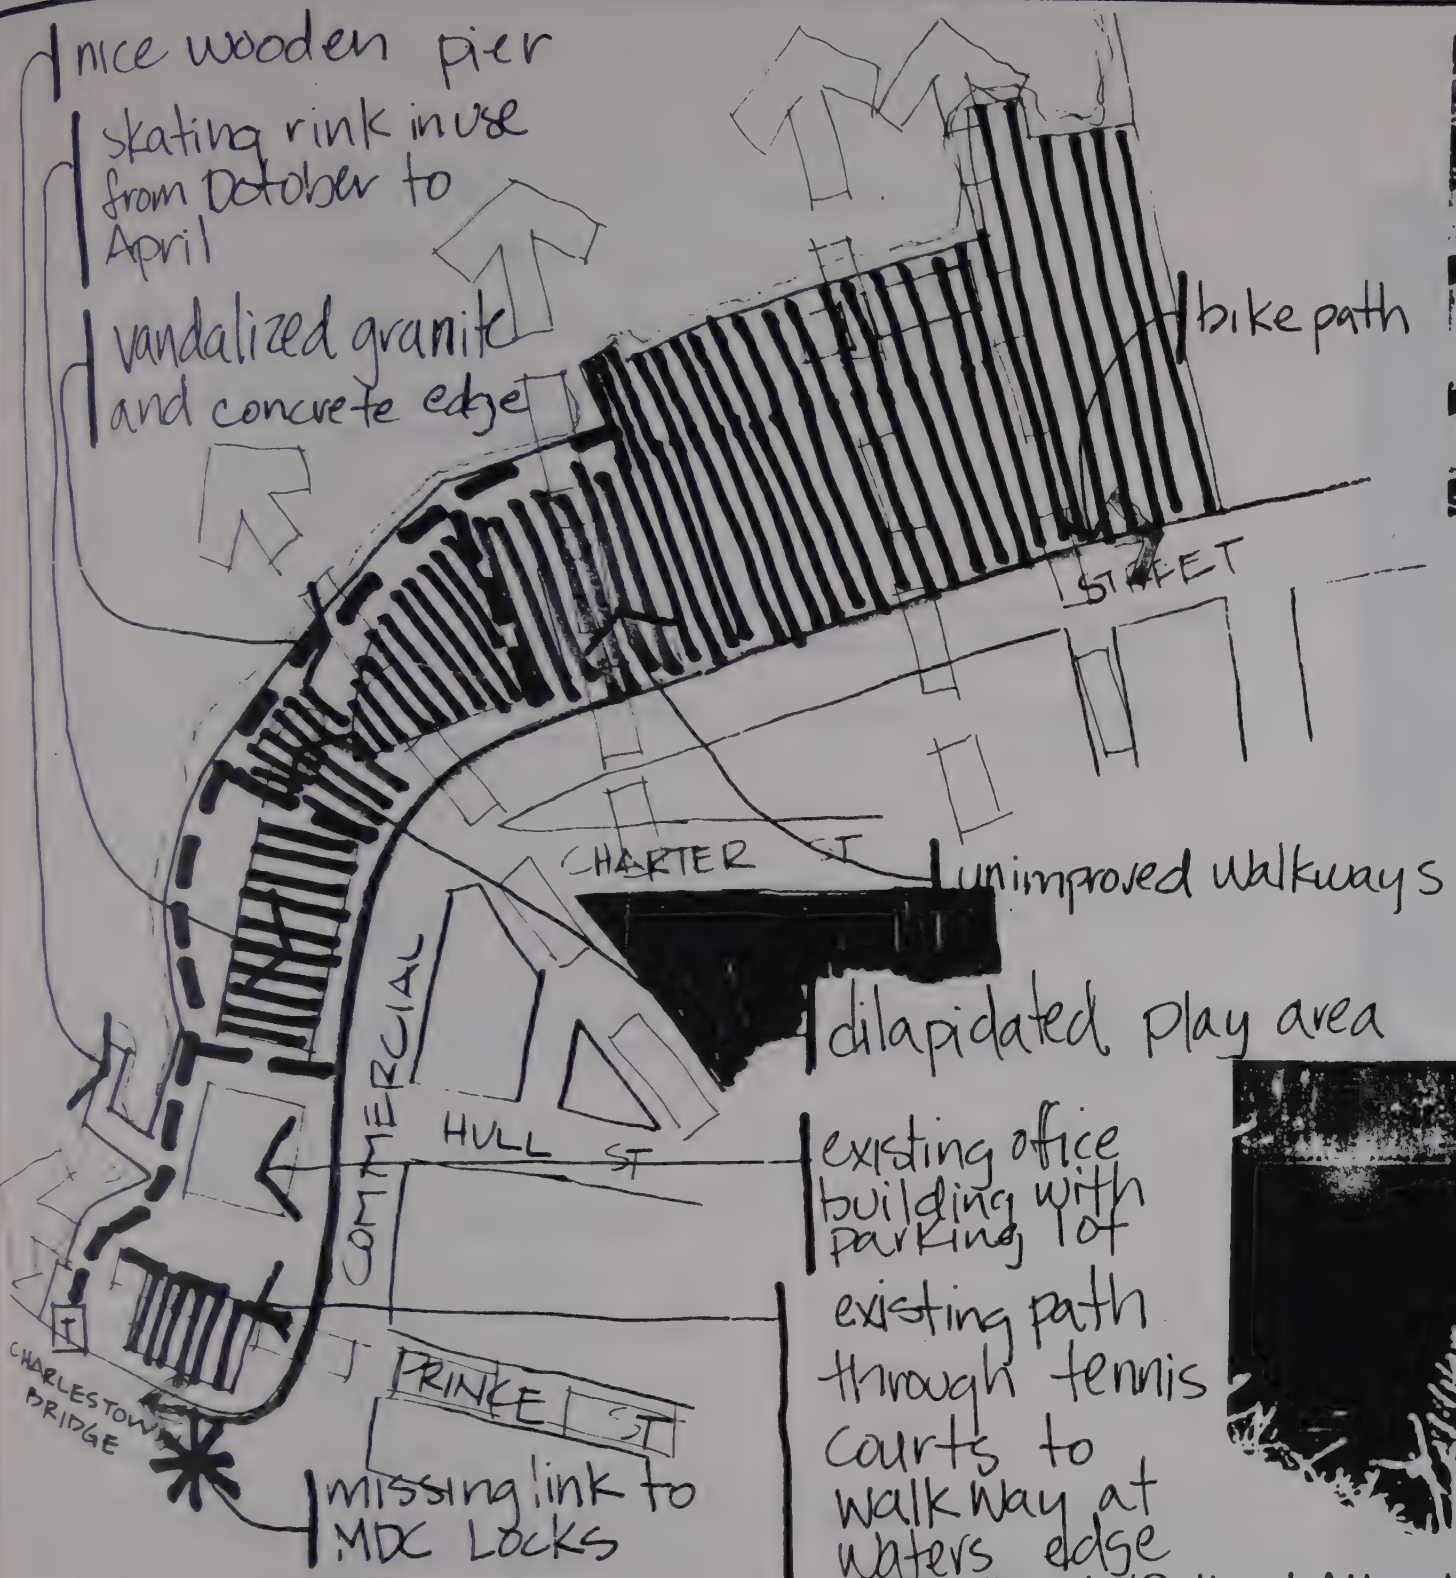 nice wooden pier
skating rink in use
from October to
April
vandalized granite
and concrete edge
bike path
STREET
CHARTER ST
unimproved walkways
dilapidated play area
COMMERCIAL
HULL ST
existing office
building with
parking lot
existing path
through tennis
courts to
walkway at
waters edge
PRINCE ST
CHARLESTOWN
BRIDGE
missing link to
MDC Locks